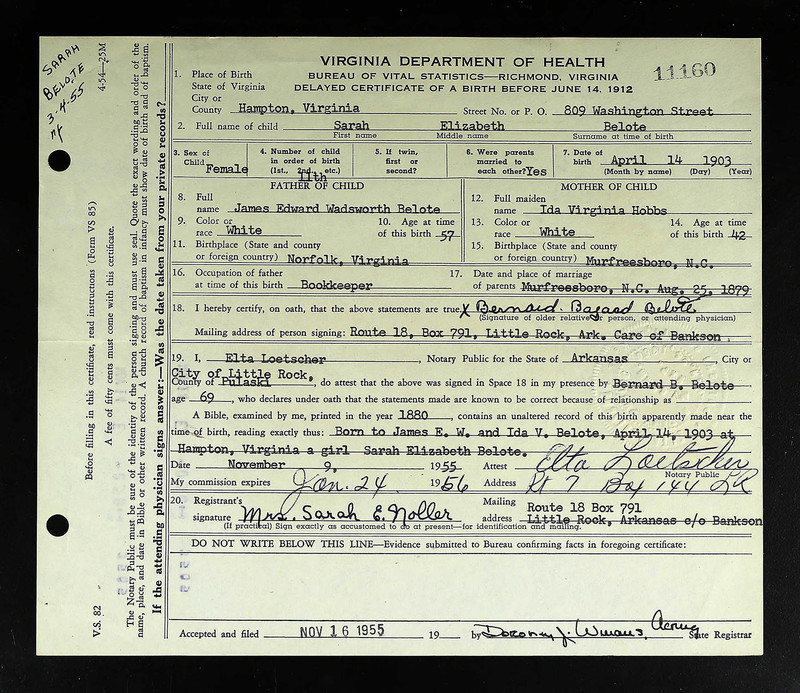 VIRGINIA DEPARTMENT OF HEALTH
BUREAU OF VITAL STATISTICS—RICHMOND, VIRGINIA
DELAYED CERTIFICATE OF A BIRTH BEFORE JUNE 14, 1912
11160
1. Place of Birth
State of Virginia
City or
County Hampton, Virginia Street No. or P. O. 809 Washington Street
2. Full name of child Sarah Elizabeth Belote
First name Middle name Surname at time of birth
3. Sex of Child Female 4. Number of child in order of birth (1st., 2nd., etc.) 11th 5. If twin, first or second? 6. Were parents married to each other? Yes 7. Date of birth April 14 1903
(Month by name) (Day) (Year)
FATHER OF CHILD MOTHER OF CHILD
8. Full name James Edward Wadsworth Belote 12. Full maiden name Ida Virginia Hobbs
9. Color or race White 10. Age at time of this birth 57 13. Color or race White 14. Age at time of this birth 42
11. Birthplace (State and county or foreign country) Norfolk, Virginia 15. Birthplace (State and county or foreign country) Murfreesboro, N.C.
16. Occupation of father at time of this birth Bookkeeper 17. Date and place of marriage of parents Murfreesboro, N.C. Aug. 25, 1879
18. I hereby certify, on oath, that the above statements are true. X Bernard Belote
(Signature of older relative, or person, or attending physician)
Mailing address of person signing: Route 18, Box 791, Little Rock, Ark. Care of Bankson
19. I, Elta Loetscher, Notary Public for the State of Arkansas, City or
City of Little Rock,
County of Pulaski, do attest that the above was signed in Space 18 in my presence by Bernard B. Belote
age 69, who declares under oath that the statements made are known to be correct because of relationship as
A Bible, examined by me, printed in the year 1880, contains an unaltered record of this birth apparently made near the
time of birth, reading exactly thus: Born to James E. W. and Ida V. Belote, April 14, 1903 at
Hampton, Virginia a girl Sarah Elizabeth Belote.
Date November 9, 1955 Attest Elta Loetscher
Notary Public
My commission expires Jan. 24 1956 Address Rt 7 Box 144 LR
20. Registrant's signature Mrs. Sarah E. Noller Mailing address Route 18 Box 791
Little Rock, Arkansas c/o Bankson
(If practical) Sign exactly as accustomed to do at present—for identification and mailing.
DO NOT WRITE BELOW THIS LINE—Evidence submitted to Bureau confirming facts in foregoing certificate:
Accepted and filed NOV 16 1955 19 by Dorothy J. Acting State Registrar
SARAH
BELOTE
3-4-55
4-54—25M
Before filling in this certificate, read instructions (Form VS 85)
A fee of fifty cents must come with this certificate.
V.S. 82
The Notary Public must be sure of the identity of the person signing and must use seal. Quote the exact wording and order of the
name, place, and date in Bible or other written record. A church record of baptism in infancy must show date of birth and of baptism.
If the attending physician signs answer:—Was the date taken from your private records?